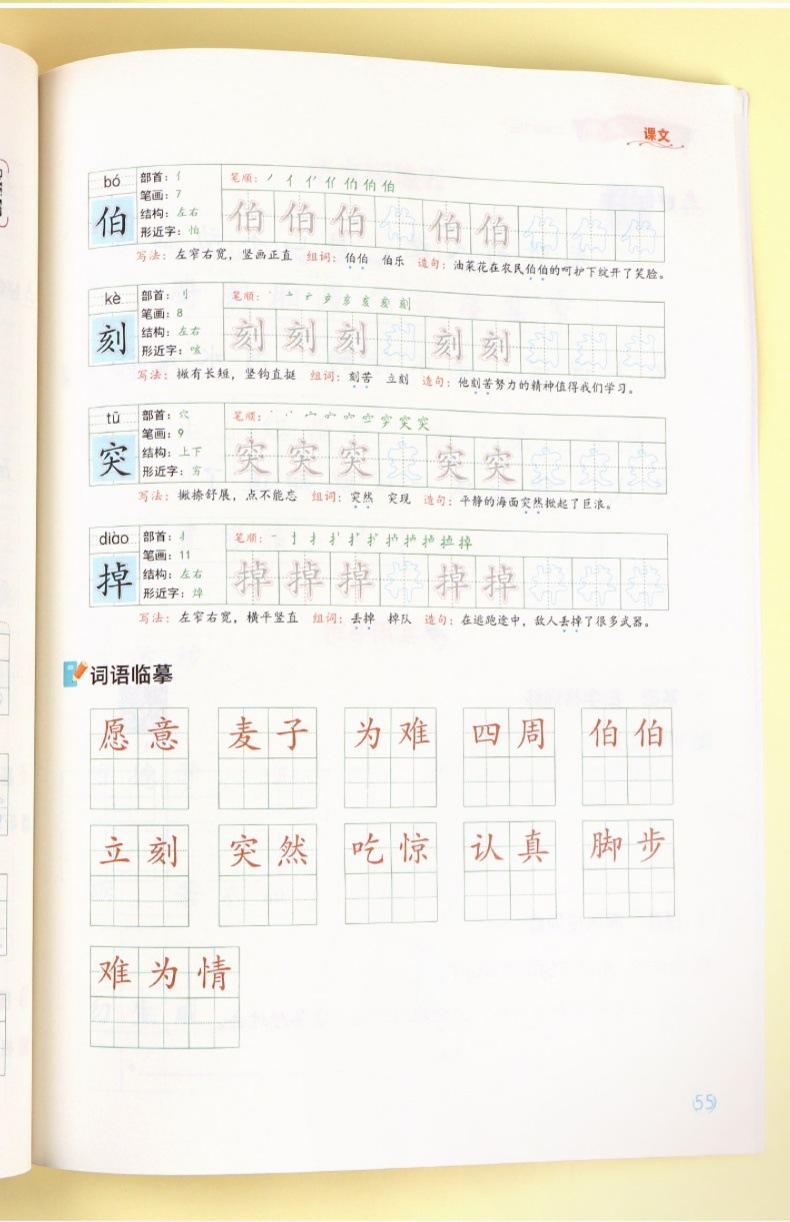 课文
bó
伯
部首：亻
笔画：7
结构：左右
形近字：怕
笔顺：
伯 伯 伯 伯 伯 伯 伯 伯 伯
写法：左窄右宽，竖画正直 组词：伯伯 伯乐 造句：油菜花在农民伯伯的呵护下绽开了笑脸。
kè
刻
部首：刂
笔画：8
结构：左右
形近字：咳
笔顺：
刻 刻 刻 刻 刻 刻 刻 刻 刻
写法：撇有长短，竖钩直挺 组词：刻苦 立刻 造句：他刻苦努力的精神值得我们学习。
tū
突
部首：穴
笔画：9
结构：上下
形近字：穷
笔顺：
突 突 突 突 突 突 突 突 突
写法：撇捺舒展，点不能忘 组词：突然 突现 造句：平静的海面突然掀起了巨浪。
diào
掉
部首：扌
笔画：11
结构：左右
形近字：焯
笔顺：
掉 掉 掉 掉 掉 掉 掉 掉 掉
写法：左窄右宽，横平竖直 组词：丢掉 掉队 造句：在逃跑途中，敌人丢掉了很多武器。
词语临摹
愿意 麦子 为难 四周 伯伯
立刻 突然 吃惊 认真 脚步
难为情
55